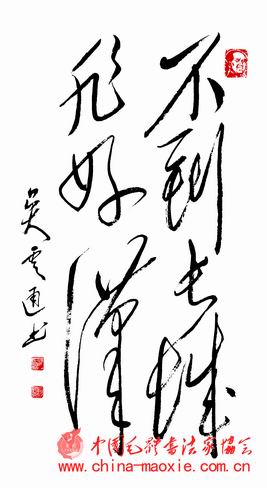 不到长城
非好漢
吴雲通书
中国毛體书法家協会
www.china-maoxie.com.cn